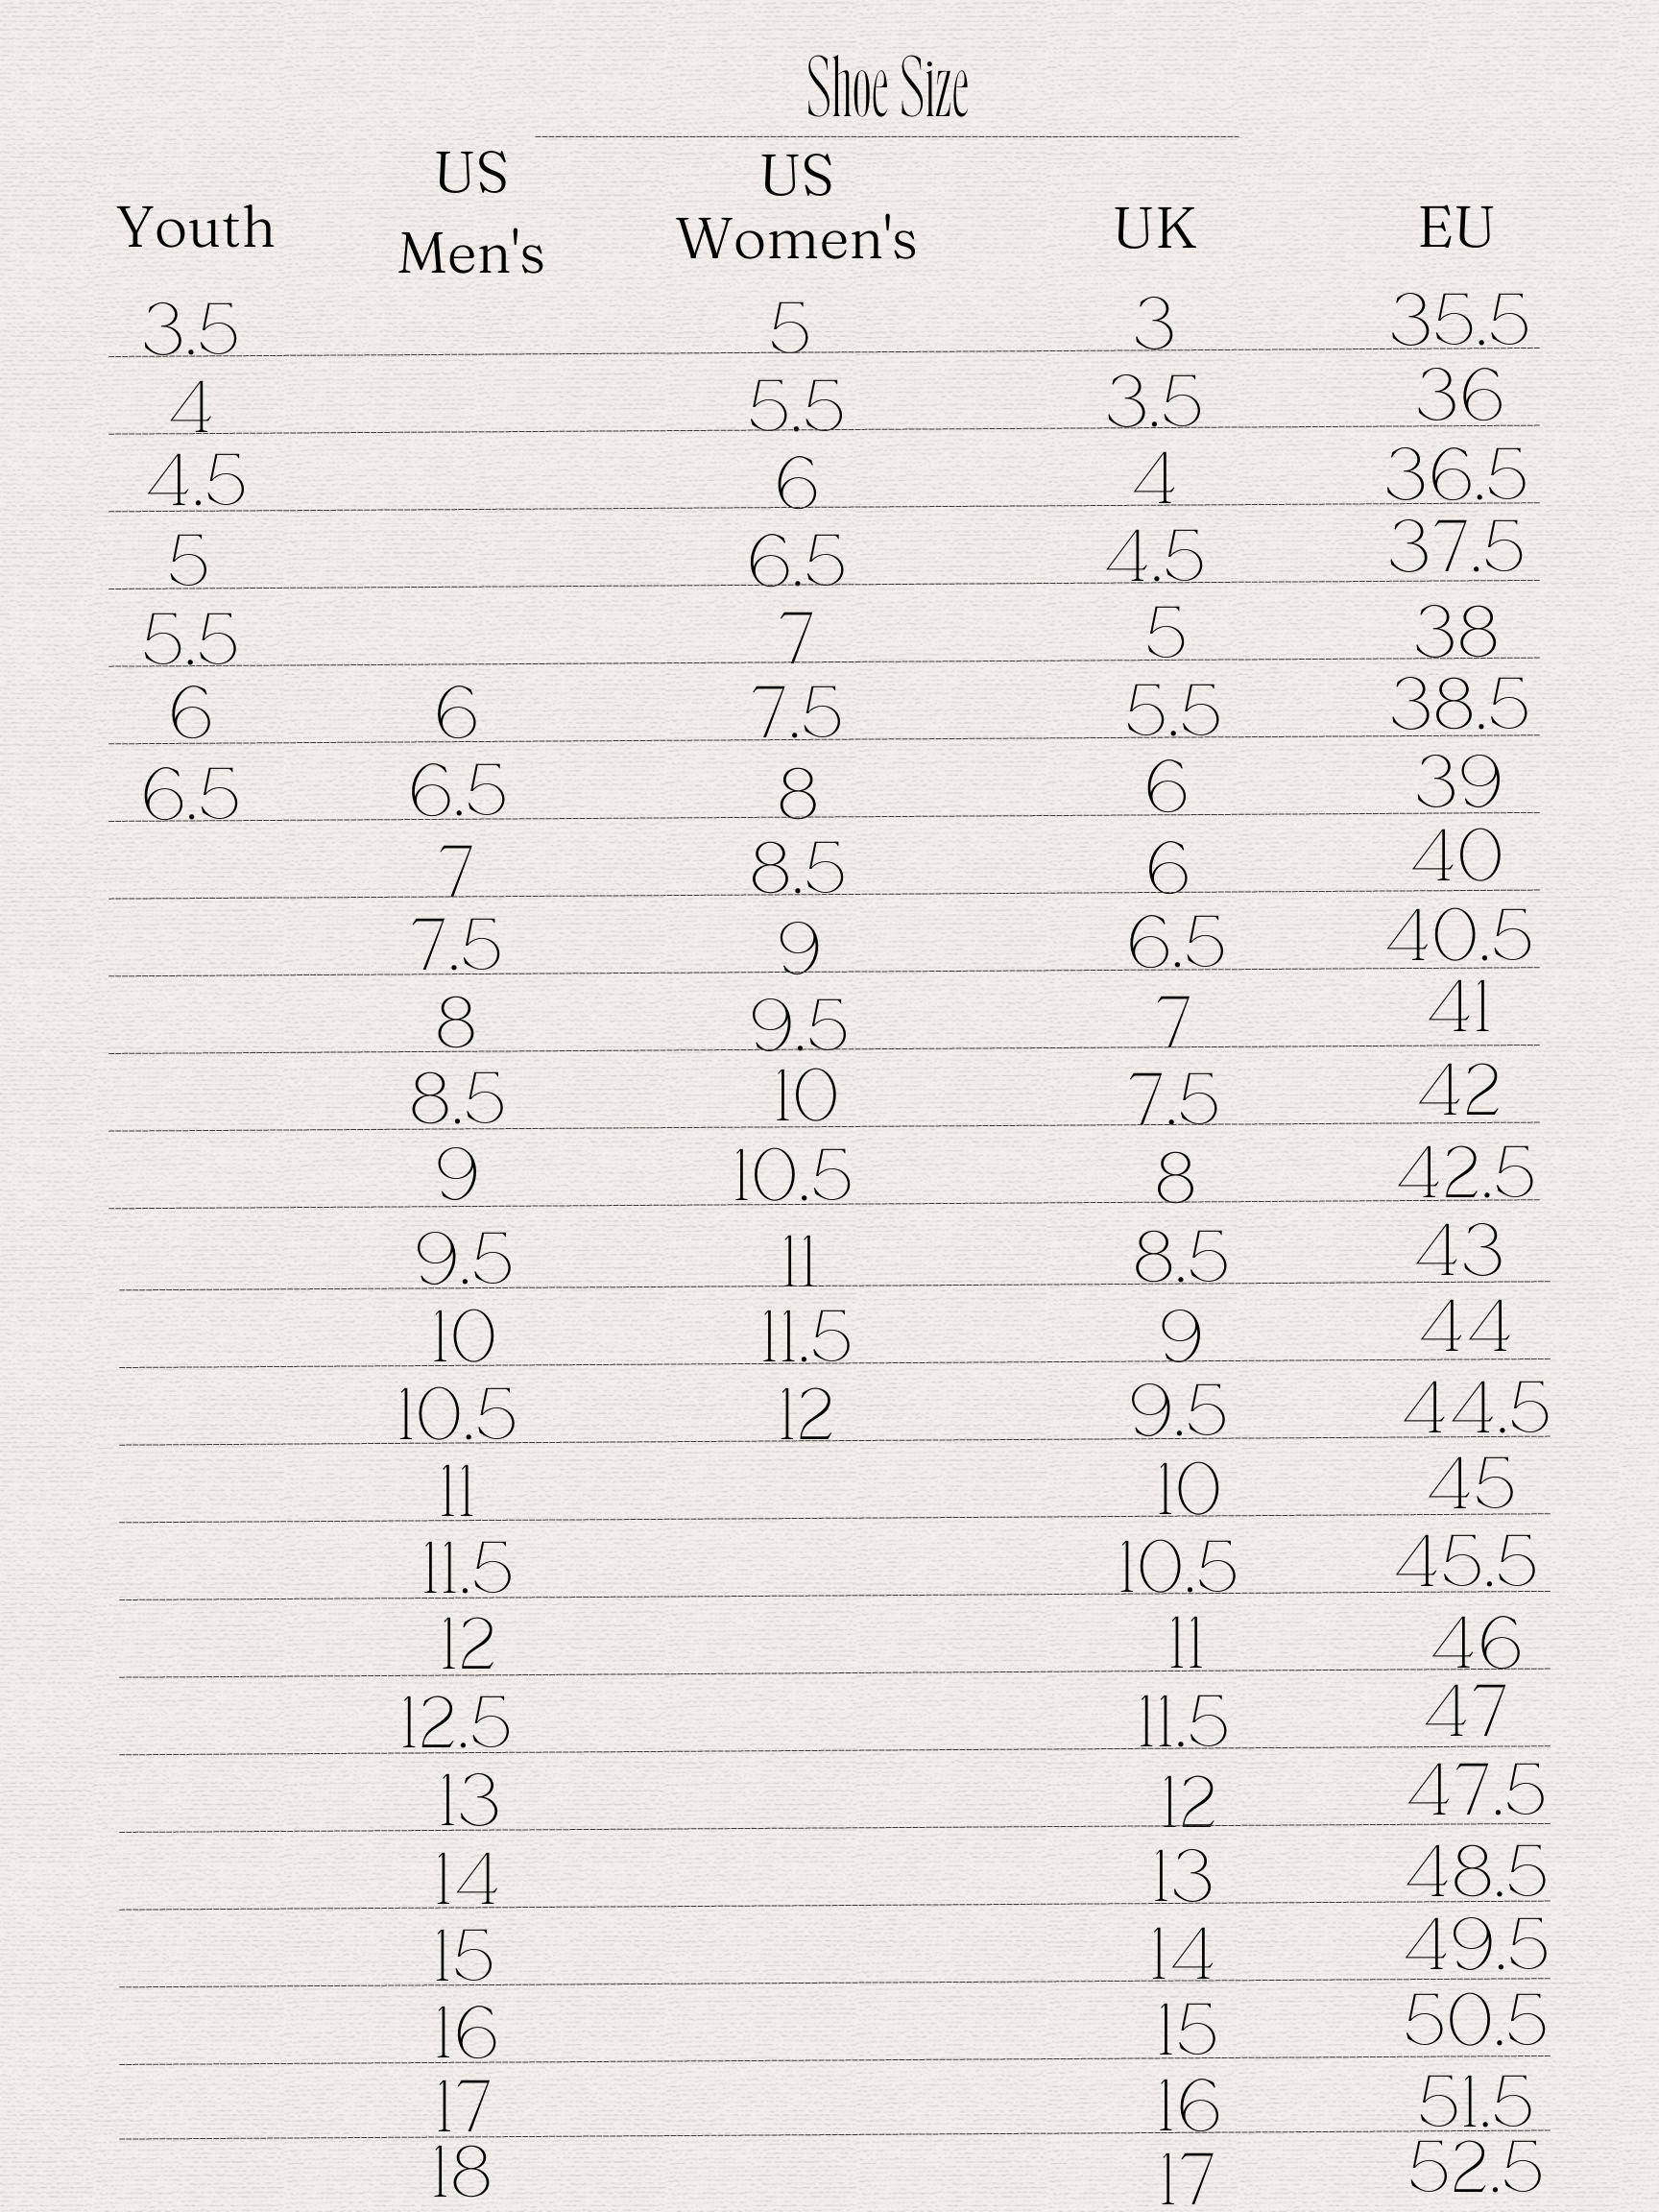 Shoe Size
Youth US Men's US Women's UK EU
3.5 5 3 35.5
4 5.5 3.5 36
4.5 6 4 36.5
5 6.5 4.5 37.5
5.5 7 5 38
6 6 7.5 5.5 38.5
6.5 6.5 8 6 39
7 8.5 6 40
7.5 9 6.5 40.5
8 9.5 7 41
8.5 10 7.5 42
9 10.5 8 42.5
9.5 11 8.5 43
10 11.5 9 44
10.5 12 9.5 44.5
11 10 45
11.5 10.5 45.5
12 11 46
12.5 11.5 47
13 12 47.5
14 13 48.5
15 14 49.5
16 15 50.5
17 16 51.5
18 17 52.5